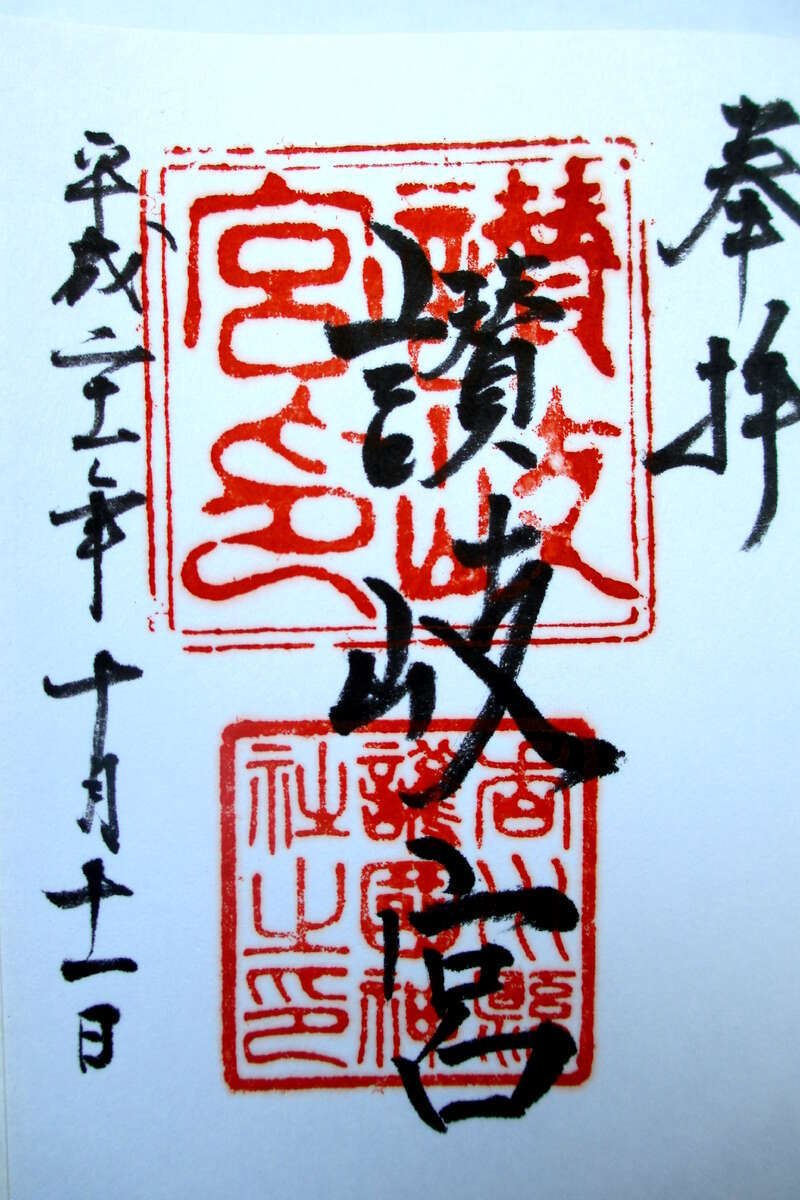 奉拝
讃岐宮
平成二十一年十月十一日
讃岐宮印
香川縣護國神社之印